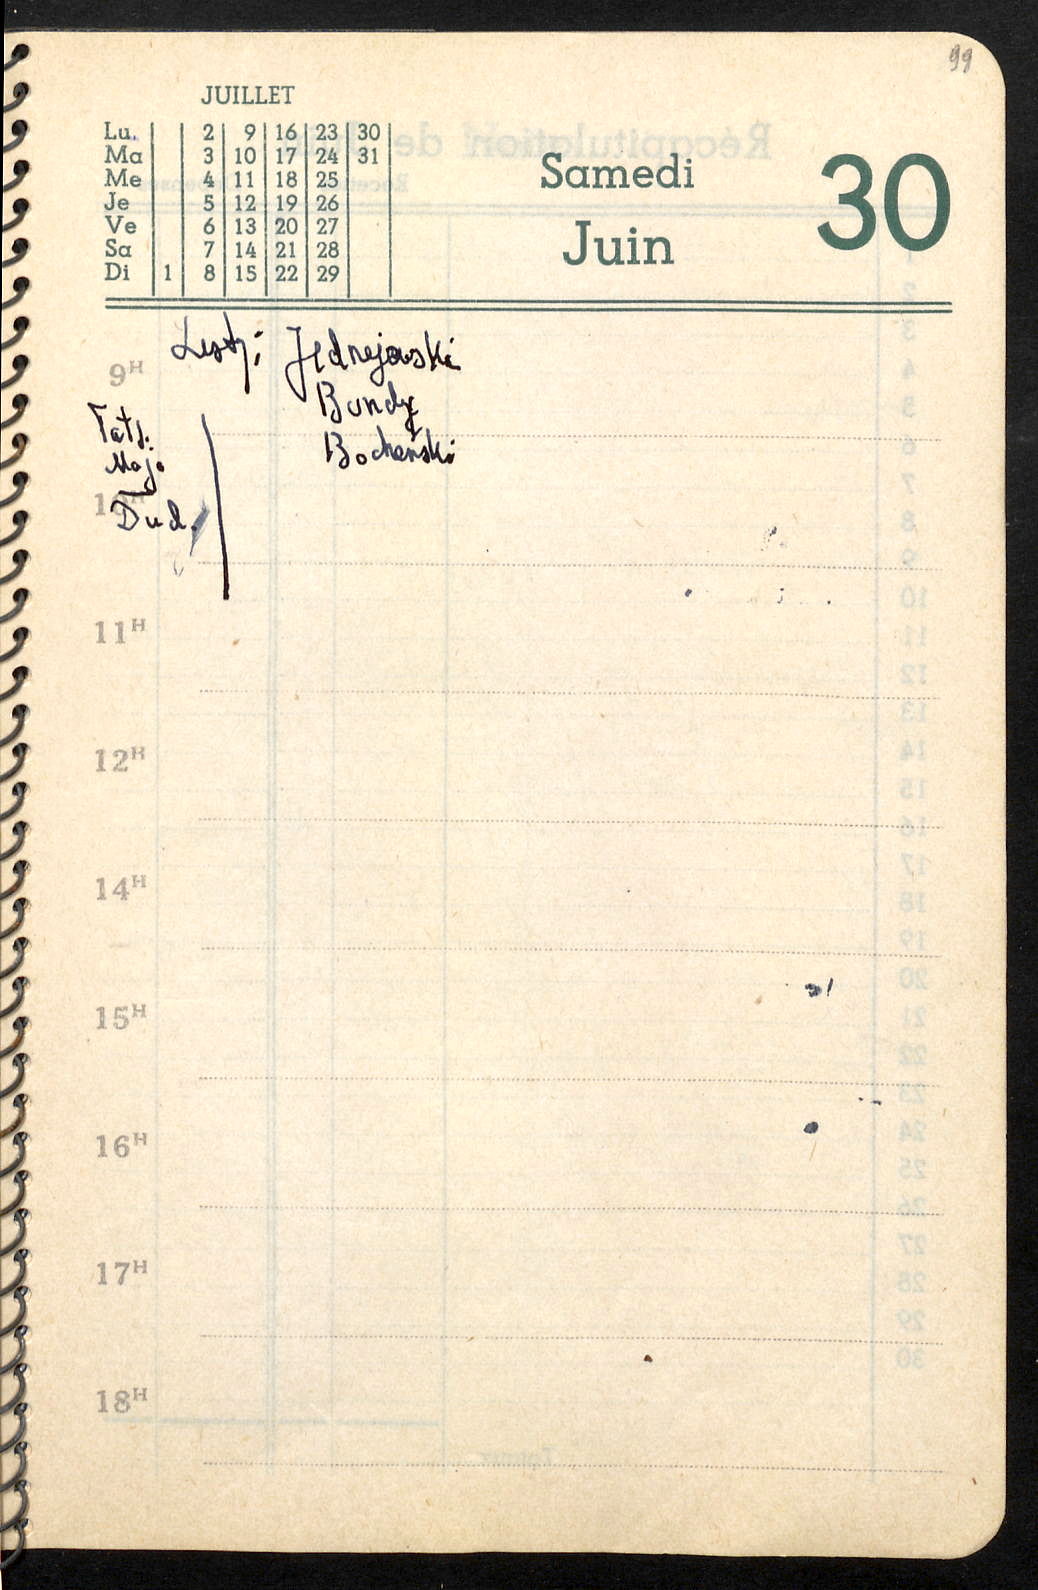 99
JUILLET
Lu. 2 9 16 23 30
Ma 3 10 17 24 31
Me 4 11 18 25
Je 5 12 19 26
Ve 6 13 20 27
Sa 7 14 21 28
Di 1 8 15 22 29
Samedi
Juin
30
Listy: Jędrzejowski
Bondy
Bocheński
9H
10H
Dud.
11H
12H
14H
15H
16H
17H
18H